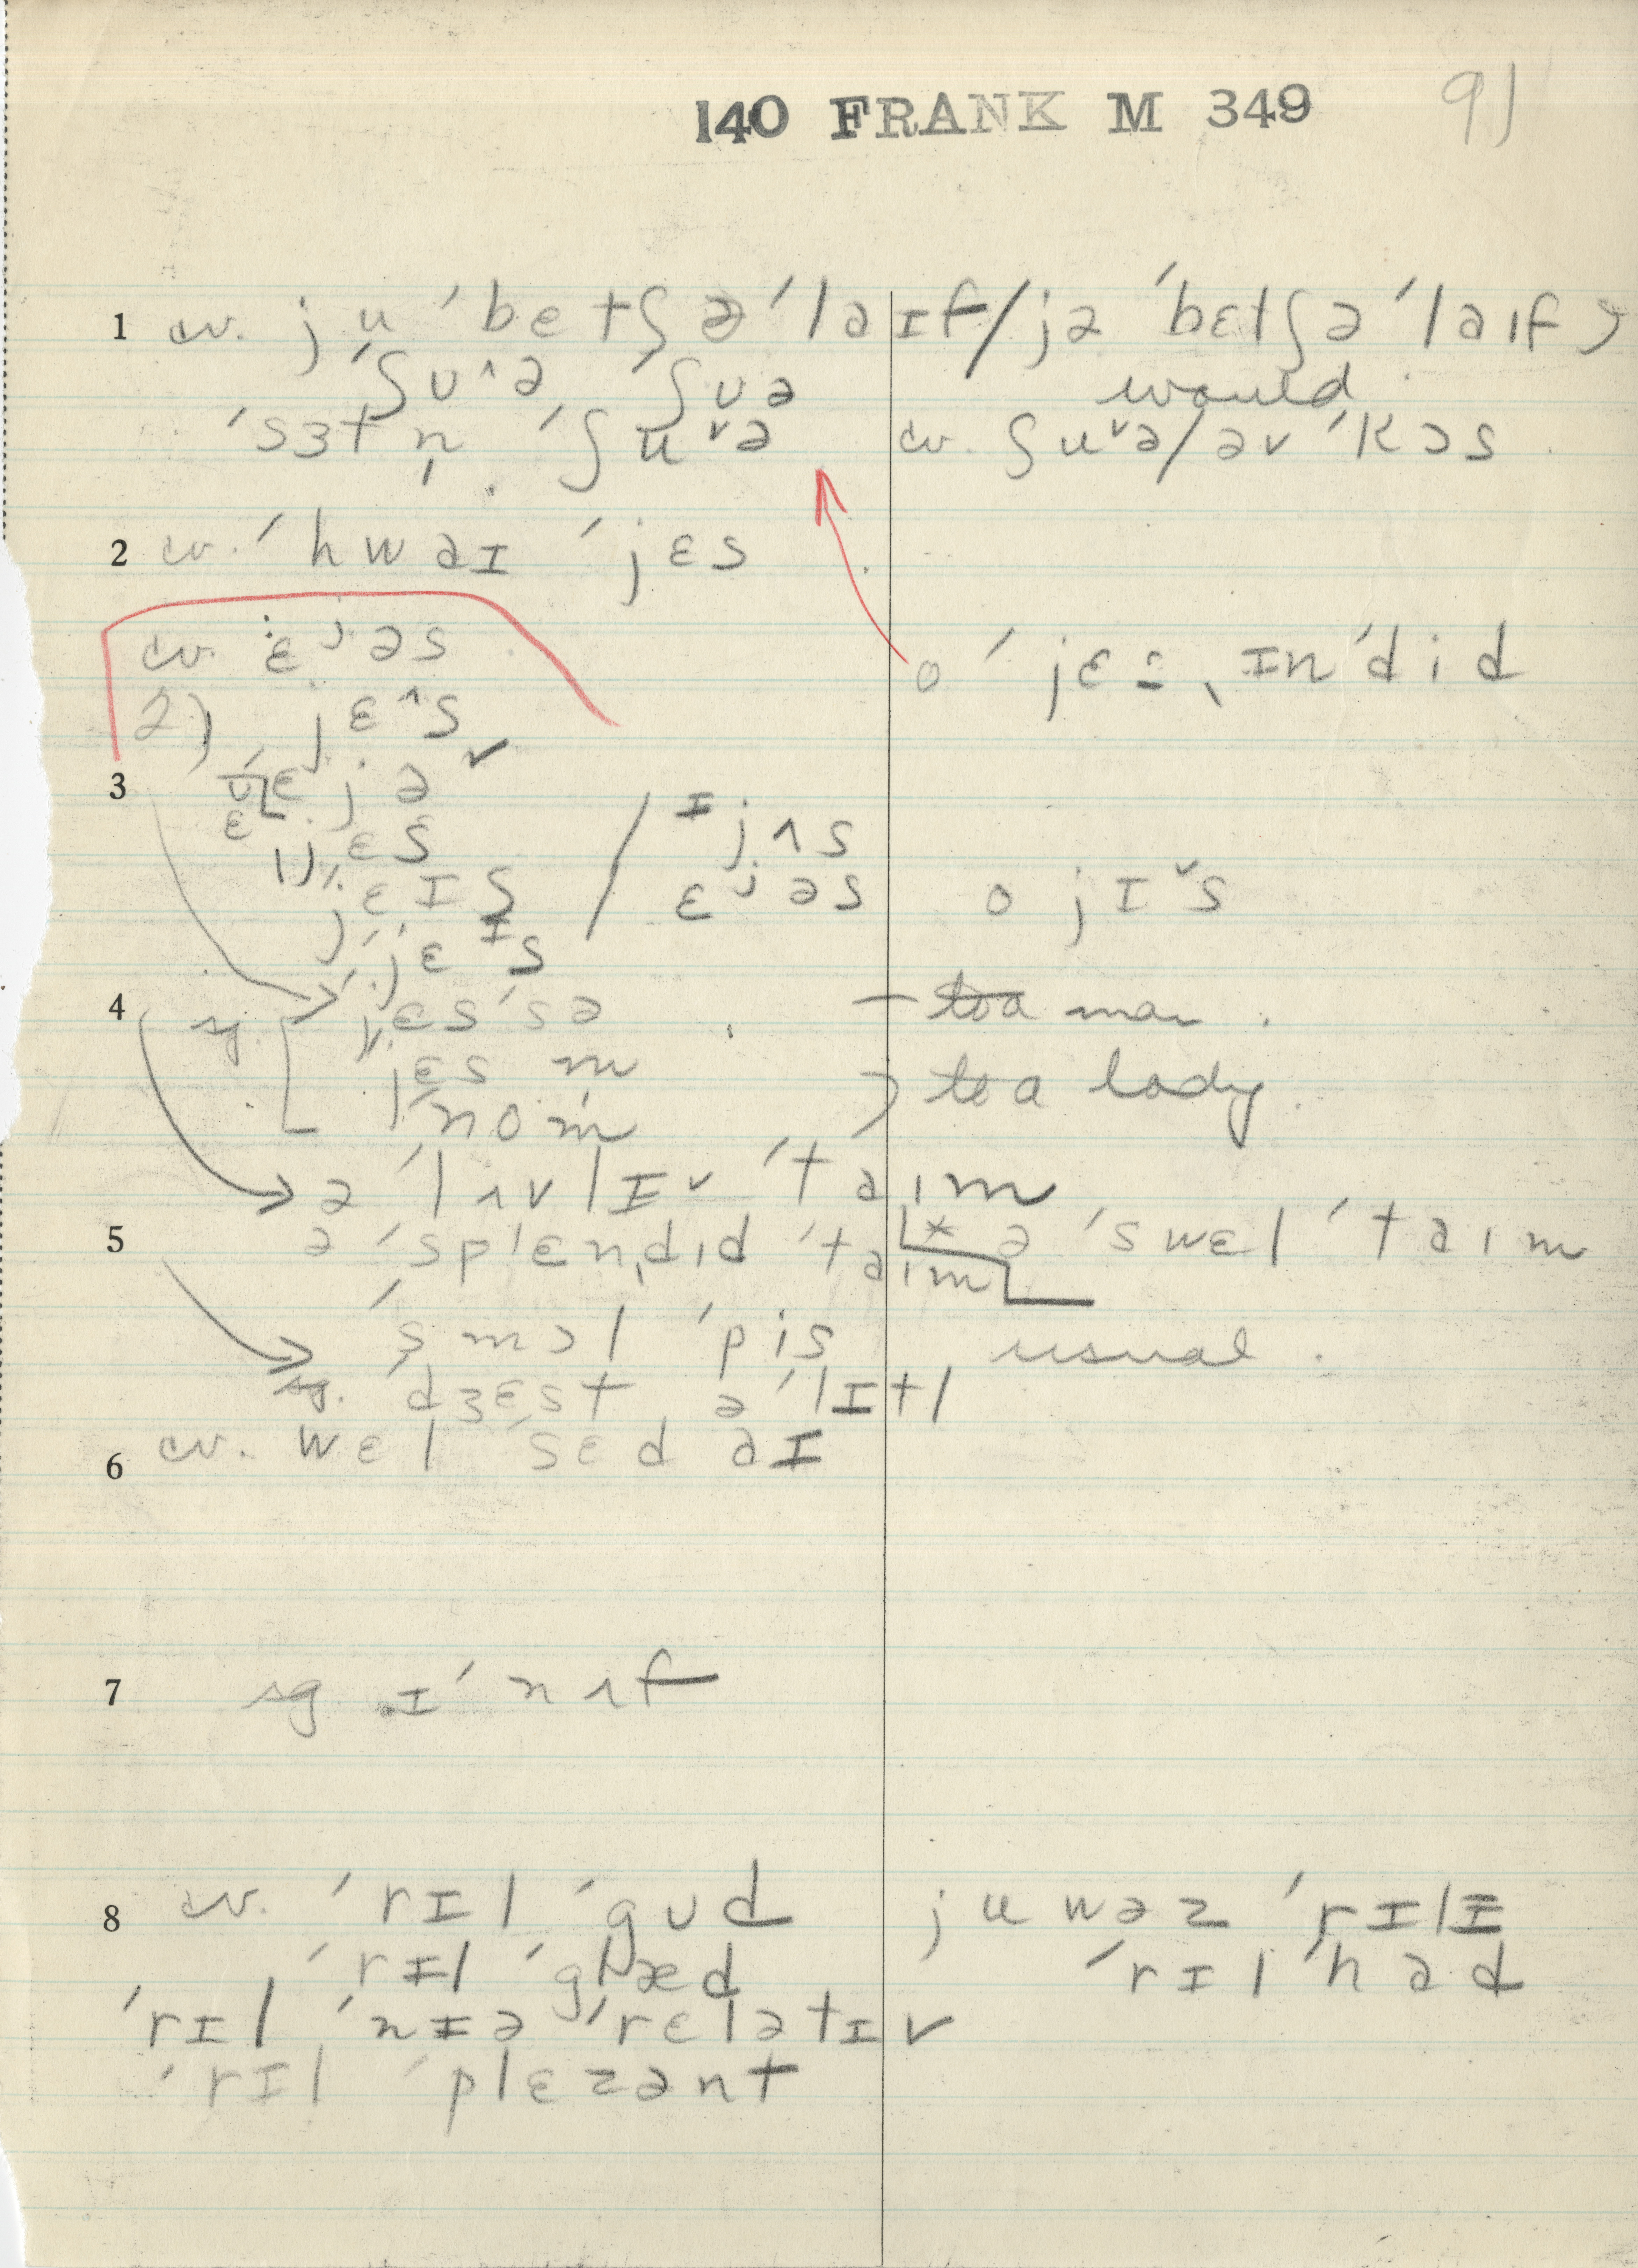 140 FRANK M 349 91
1 cv. ju ˈbetʃə ˈlaɪf / jə ˈbɛtʃə ˈlaɪf
ˈʃʊ˄ə ˈʃʊə would
ˈsɜtn̩ ˈʃu˅ə cv. ʃu˅ə / əv ˈkɔs
2 cv. ˈhwaɪ ˈjɛs
cv. ɛʲəs o ˈjɛs ˌɪnˈdid
2) jɛ˄s
3 ɛjə
ɪjʌs
1) jɛs
jɛɪs / ɛʲəs o jɪ˅s
ˈjɛᶦs
4 sg. ˈjɛsˈsə – to a man
ˈjɛsm ) to a lady
ˈnom
ə ˈlʌvlɪ˅ ˈtaɪm
5 ə ˈsplɛnˌdɪd ˈtaɪm * ə ˈswɛl ˈtaɪm
ˈsmɔl ˈpis usual
sg. ˈdʒɛst ə ˈlɪtl
6 cv. wɛl ˈsɛd aɪ
7 sg ɪˈnʌf
8 cv. ˈrɪl ˈgʊd ju wəz ˈrɪlɪ
ˈrɪl ˈglæd ˈrɪl ˈhad
ˈrɪl ˈnɪə ˈrɛlətɪv
ˈrɪl ˈplɛzənt